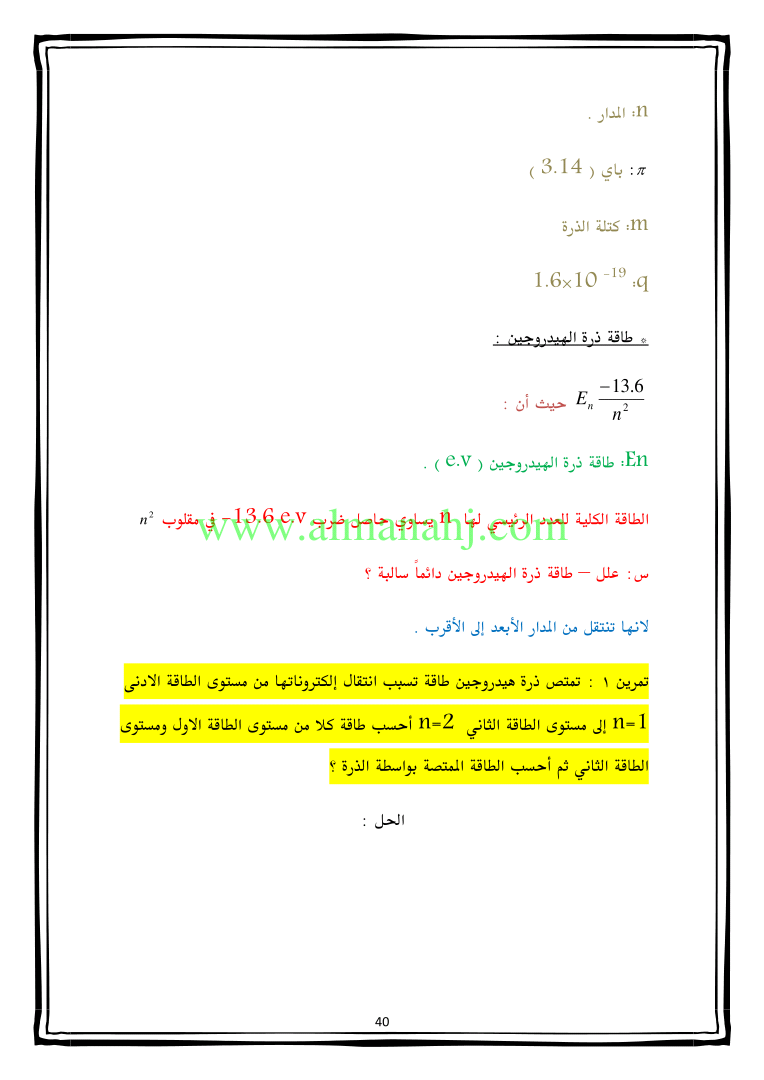 n: المدار .
π : باي ( 3.14 )
m: كتلة الذرة
q: 1.6×10 -19
* طاقة ذرة الهيدروجين :
Eₙ −13.6/n² حيث أن :
En: طاقة ذرة الهيدروجين ( e.v ) .
الطاقة الكلية للعدد الرئيسي لها n يساوي حاصل ضرب 13.6 e.v− في مقلوب n²
www.almanahj.com
س: علل – طاقة ذرة الهيدروجين دائماً سالبة ؟
لانها تنتقل من المدار الأبعد إلى الأقرب .
تمرين ١ : تمتص ذرة هيدروجين طاقة تسبب انتقال إلكتروناتها من مستوى الطاقة الادنى
n=1 إلى مستوى الطاقة الثاني n=2 أحسب طاقة كلا من مستوى الطاقة الاول ومستوى
الطاقة الثاني ثم أحسب الطاقة الممتصة بواسطة الذرة ؟
الحل :
40